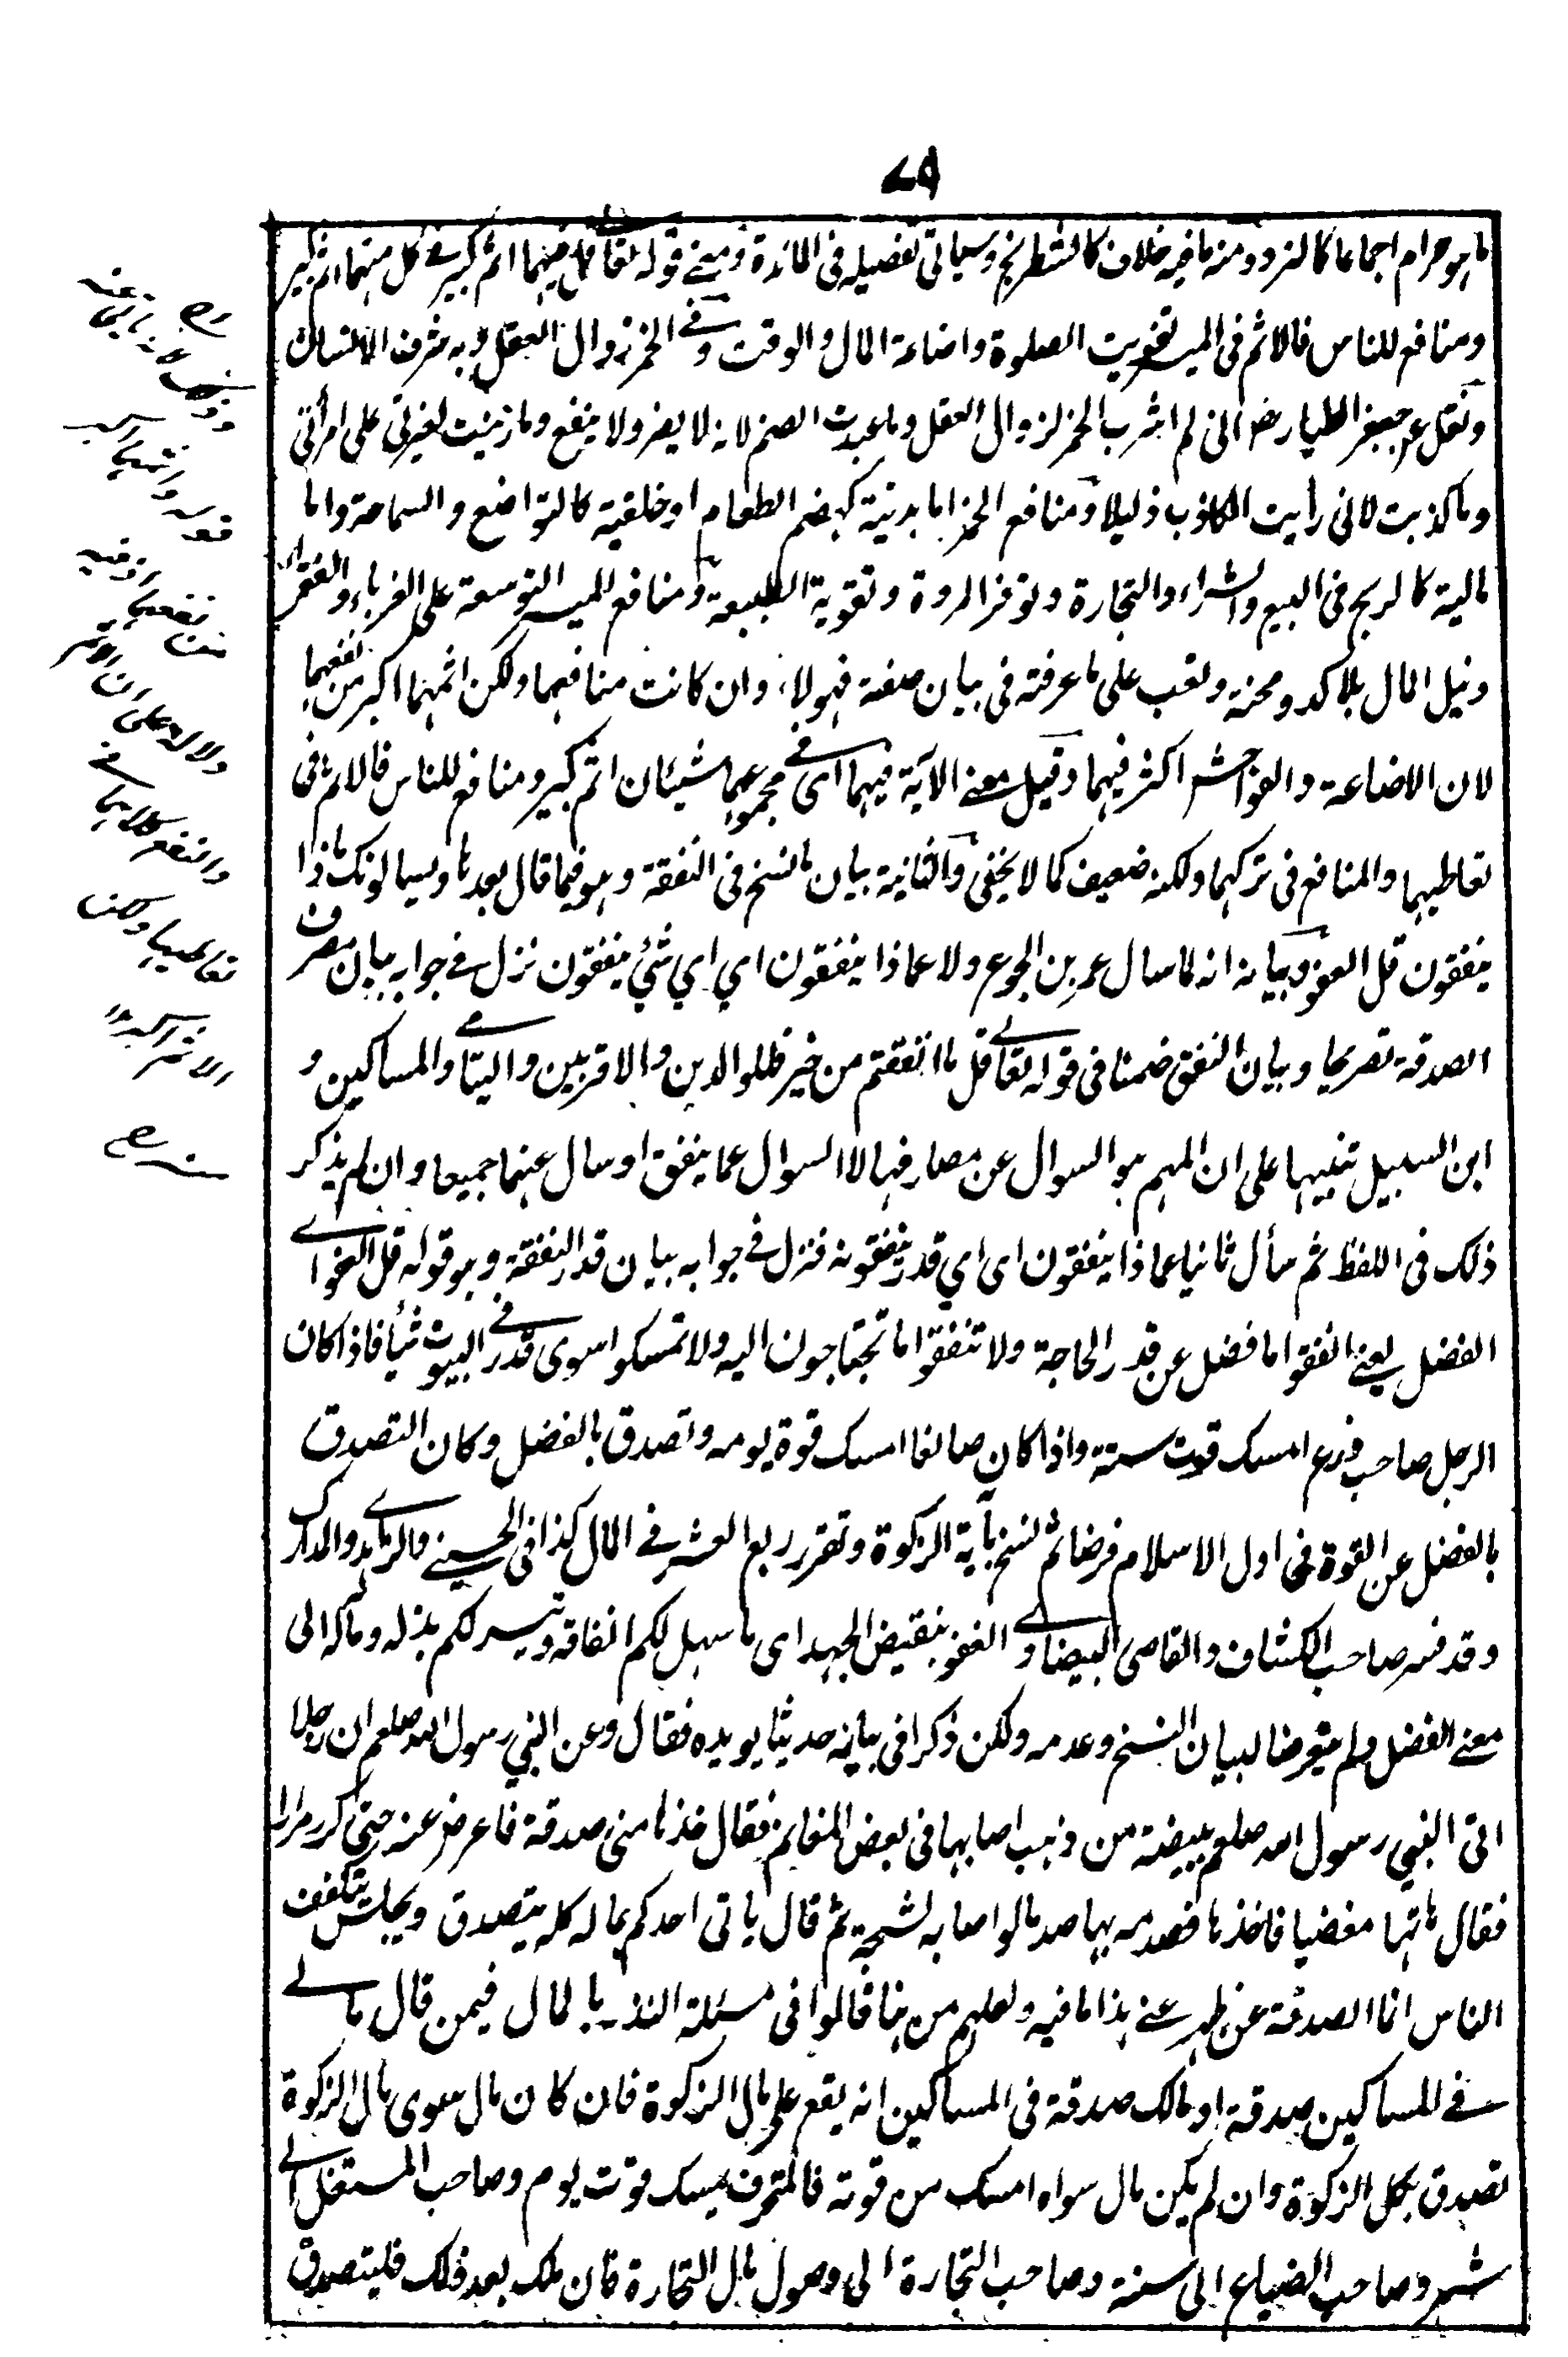 ٧٩
ما هو حرام اجماعا كالنرد ومنه ما فيه خلاف كالشطرنج وسياتى تفصيله فى المائدة ومعنے قوله تعالے قل فيهما اثم كبير فے كل منهما اثم كبير
ومنافع للناس فالاثم فى الميسر تفويت الصلوة واضاعة المال والوقت وفے الخمر زوال العقل وبه شرف الانسان
ونقل عن جعفر الطيار رض انى لم اشرب الخمر لزوال العقل وما عبدت الصنم لانه لا يضر ولا ينفع وما زنيت لغيرتى على امرأتى
وما كذبت لانى رأيت الكاذب ذليلا ومنافع الخمر اما بدنية كهضم الطعام او خلقية كالتواضع والسماحة واما
مالية كالربح فى البيع والشراء والتجارة وتوفر المروة وتقوية الطبيعة ومنافع الميسر التوسعة على الغرباء والفقراء
ونيل المال بلا كد ومحنة وتعب على ما عرفته فى بيان صفة فهولاء وان كانت منافعهما ولكن اثمهما اكبر من نفعهما
لان الاضاعة والفواحش اكثر فيهما وقيل معنے الآية فيهما اى فے مجموعهما شيئان اثم كبير ومنافع للناس فالاثم فى
تعاطيهما والمنافع فى تركهما ولكنه ضعيف كما لا يخفى والثانية بيان مانسخ فى النفقة وهو فيما قال بعدها ويسالونك ماذا
ينفقون قل العفو وبيانه انه لما سال عمر بن الجموع ولا عما ذا ينفقون اي اي شئ ينفقون نزل فے جوابه بيان مصرف
الصدقة تصريحا وبيان المنفق ضمنا فى قوله تعالے قل ما انفقتم من خير فللوالدين والاقربين واليتامے والمساكين و
ابن السبيل تنبيها على ان المهم هو السوال عن مصارفها لا السوال عما ينفق او سال عنهما جميعا وان لم يذكر
ذلك فى اللفظ ثم سأل ثانيا عما ذا ينفقون اى اي قدر ينفقونه فنزل فے جوابه ببيان قدر النفقة وهو قوله قل العفو اے
الفضل يعنے انفقوا ما فضل عن قدر الحاجة ولا تنفقوا ما تحتاجون اليه ولا تمسكوا سوى قدر فے البيوت شيأ فاذا كان
الرجل صاحب زرع امسك قوت سنة واذا كان صانعا امسك قوة يومه وتصدق بالفضل وكان التصدق
بالفضل عن القوة فى اول الاسلام فرضا ثم نسخ بآية الزكوة وتقرر ربع العشر فے المال كذا فى الحسينے والزاهدے والمدارك
وقد فسر صاحب الكشاف والقاضى البيضاوے العفو بنقيض الجهد اى ما سهل لكم انفاقه وتيسر لكم بذله ومآله الى
معنے الفضل ولم يتعرضا لبيان النسخ وعدمه ولكن ذكرا فى بيانه حديثا يويده فقال وعن النبي رسول الله صلعم ان رجلا
اتى النبي رسول الله صلعم ببيضة من ذهب اصابها فى بعض المغانم فقال خذها منى صدقة فاعرض عنه حتى كرر مرارا
فقال هاتها مغضبا فاخذها فصدمه بها صدما لو اصابه لشجه ثم قال ياتى احدكم بماله كله يتصدق ويجلس يتكفف
الناس انما الصدقة عن ظهر غنے هذا ما فيه ولعلهم من هنا قالوا فى مسئلة النذر بالمال فيمن قال مالے
فے المساكين صدقة او مالك صدقة فى المساكين انه يقع على مال الزكوة فان كان مال سوى مال الزكوة
تصدق بكل الزكوة وان لم يكن مال سواه امسك من قوته فالمحترف يمسك قوت يوم وصاحب المستغل الے
شهر وصاحب الضياع الى سنة وصاحب التجارة الى وصول مال التجارة فان ملك بعد ذلك فليتصدق
قوله واثمهما اكبر
من نفعهما
دلالة على ان
والنفع كلاهما فے
تعاطيهما ولكن
الاثم اكبر